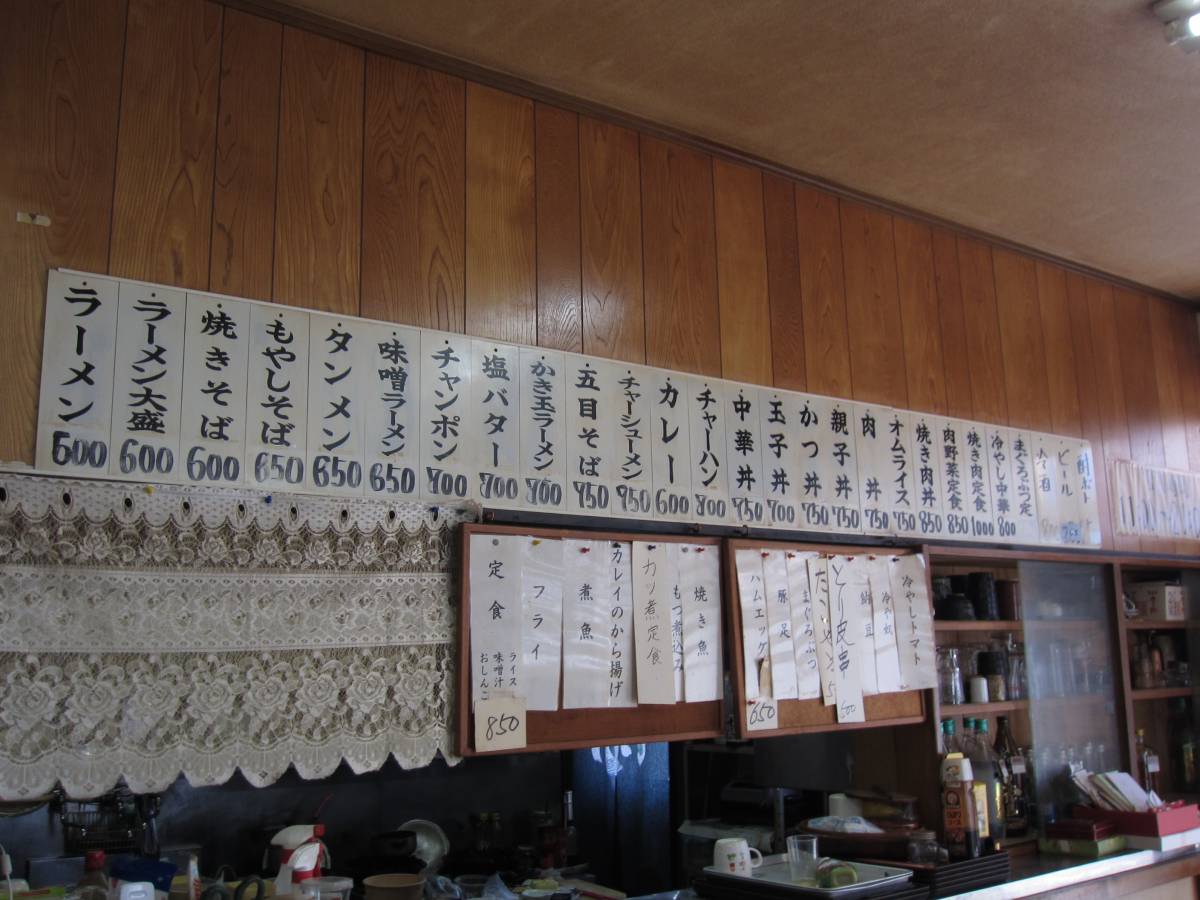 ラーメン 500
ラーメン大盛 600
焼きそば 600
もやしそば 650
タンメン 650
味噌ラーメン 650
チャンポン 700
塩バター 700
かき玉ラーメン 700
五目そば 750
チャーシューメン 750
カレー 600
チャーハン 700
中華丼 750
玉子丼 700
かつ丼 750
親子丼 750
肉丼 750
オムライス 750
焼き肉丼 850
肉野菜定食 850
焼き肉定食 1000
冷やし中華 800
まぐろぶつ定
ビール
定食
ライス
味噌汁
おしんこ
850
フライ
煮魚
カレイのから揚げ
カツ煮定食
もつ煮込み
焼き魚
ハムエッグ
650
豚足
まぐろぶつ
とり皮串
500
納豆
冷や奴
冷やしトマト